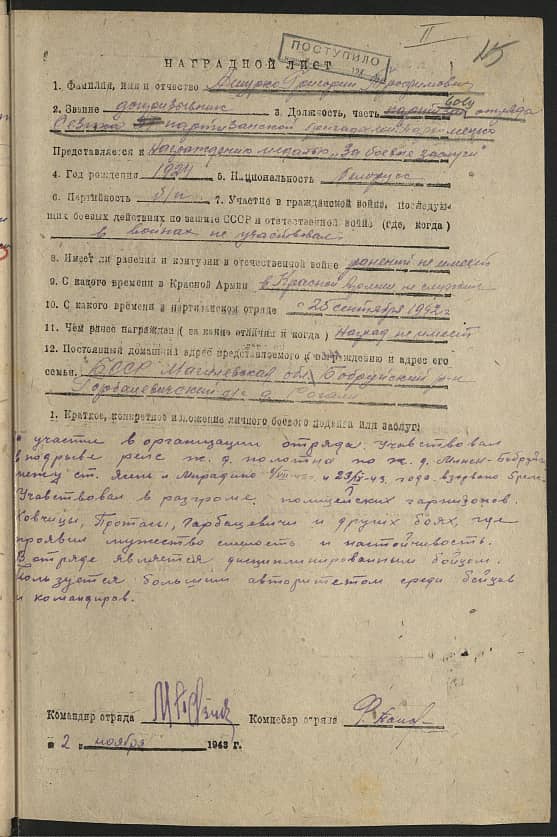 II
15
ПОСТУПИЛО
НАГРАДНОЙ ЛИСТ
1. Фамилия, имя и отчество Григорий
2. Звание допризывник 3. Должность, часть отряда
партизанской
Представляется к награждению медалью „За боевые заслуги"
4. Год рождения 1924 5. Национальность Белорусс
6. Партийность б/п 7. Участие в гражданской войне, последую-
щих боевых действиях по защите СССР и отечественной войне (где, когда)
в войнах не участвовал
8. Имеет ли ранения и контузии в отечественной войне ранений не имеет
9. С какого времени в Красной Армии в Красной Армии не служил
10. С какого времени в партизанском отряде с 25 сентября 1942 г
11. Чем ранее награжден (за какие отличия и когда) наград не имеет
12. Постоянный домашний адрес представляемого к награждению и адрес его
семьи БССР Магилевская обл. Бобруйский р-н
Горбацевичский с/с д.
1. Краткое, конкретное изложение личного боевого подвига или заслуг:
участие в организации отряда. Учавствовал
в подрыве рельс ж. д. полотна по ж. д. Минск-Бобруйск
между ст. Ясень и Мирадино и года взорвано
Учавствовал в разгроме полицейских гарнизонов
Ковчицы, Протасы, Гарбацевичи и других боях, где
проявил мужество смелость и настойчивость.
В отряде является дисциплинированным бойцом.
Пользуется большим авторитетом среди бойцов
и командиров.
Командир отряда Комиссар отряда
„2" ноября 1943 г.